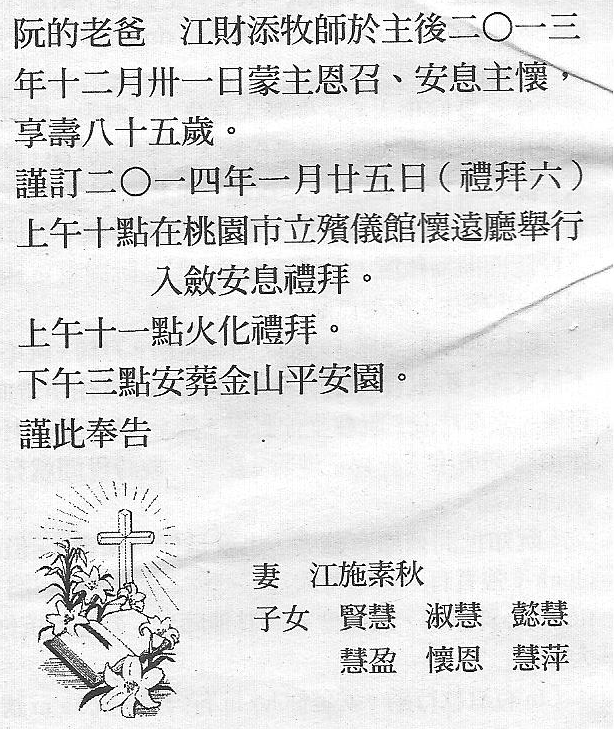 阮的老爸　江財添牧師於主後二○一三
年十二月卅一日蒙主恩召、安息主懷，
享壽八十五歲。
謹訂二○一四年一月廿五日（禮拜六）
上午十點在桃園市立殯儀館懷遠廳舉行
入斂安息禮拜。
上午十一點火化禮拜。
下午三點安葬金山平安園。
謹此奉告
妻　江施素秋
子女　賢慧　淑慧　懿慧
慧盈　懷恩　慧萍